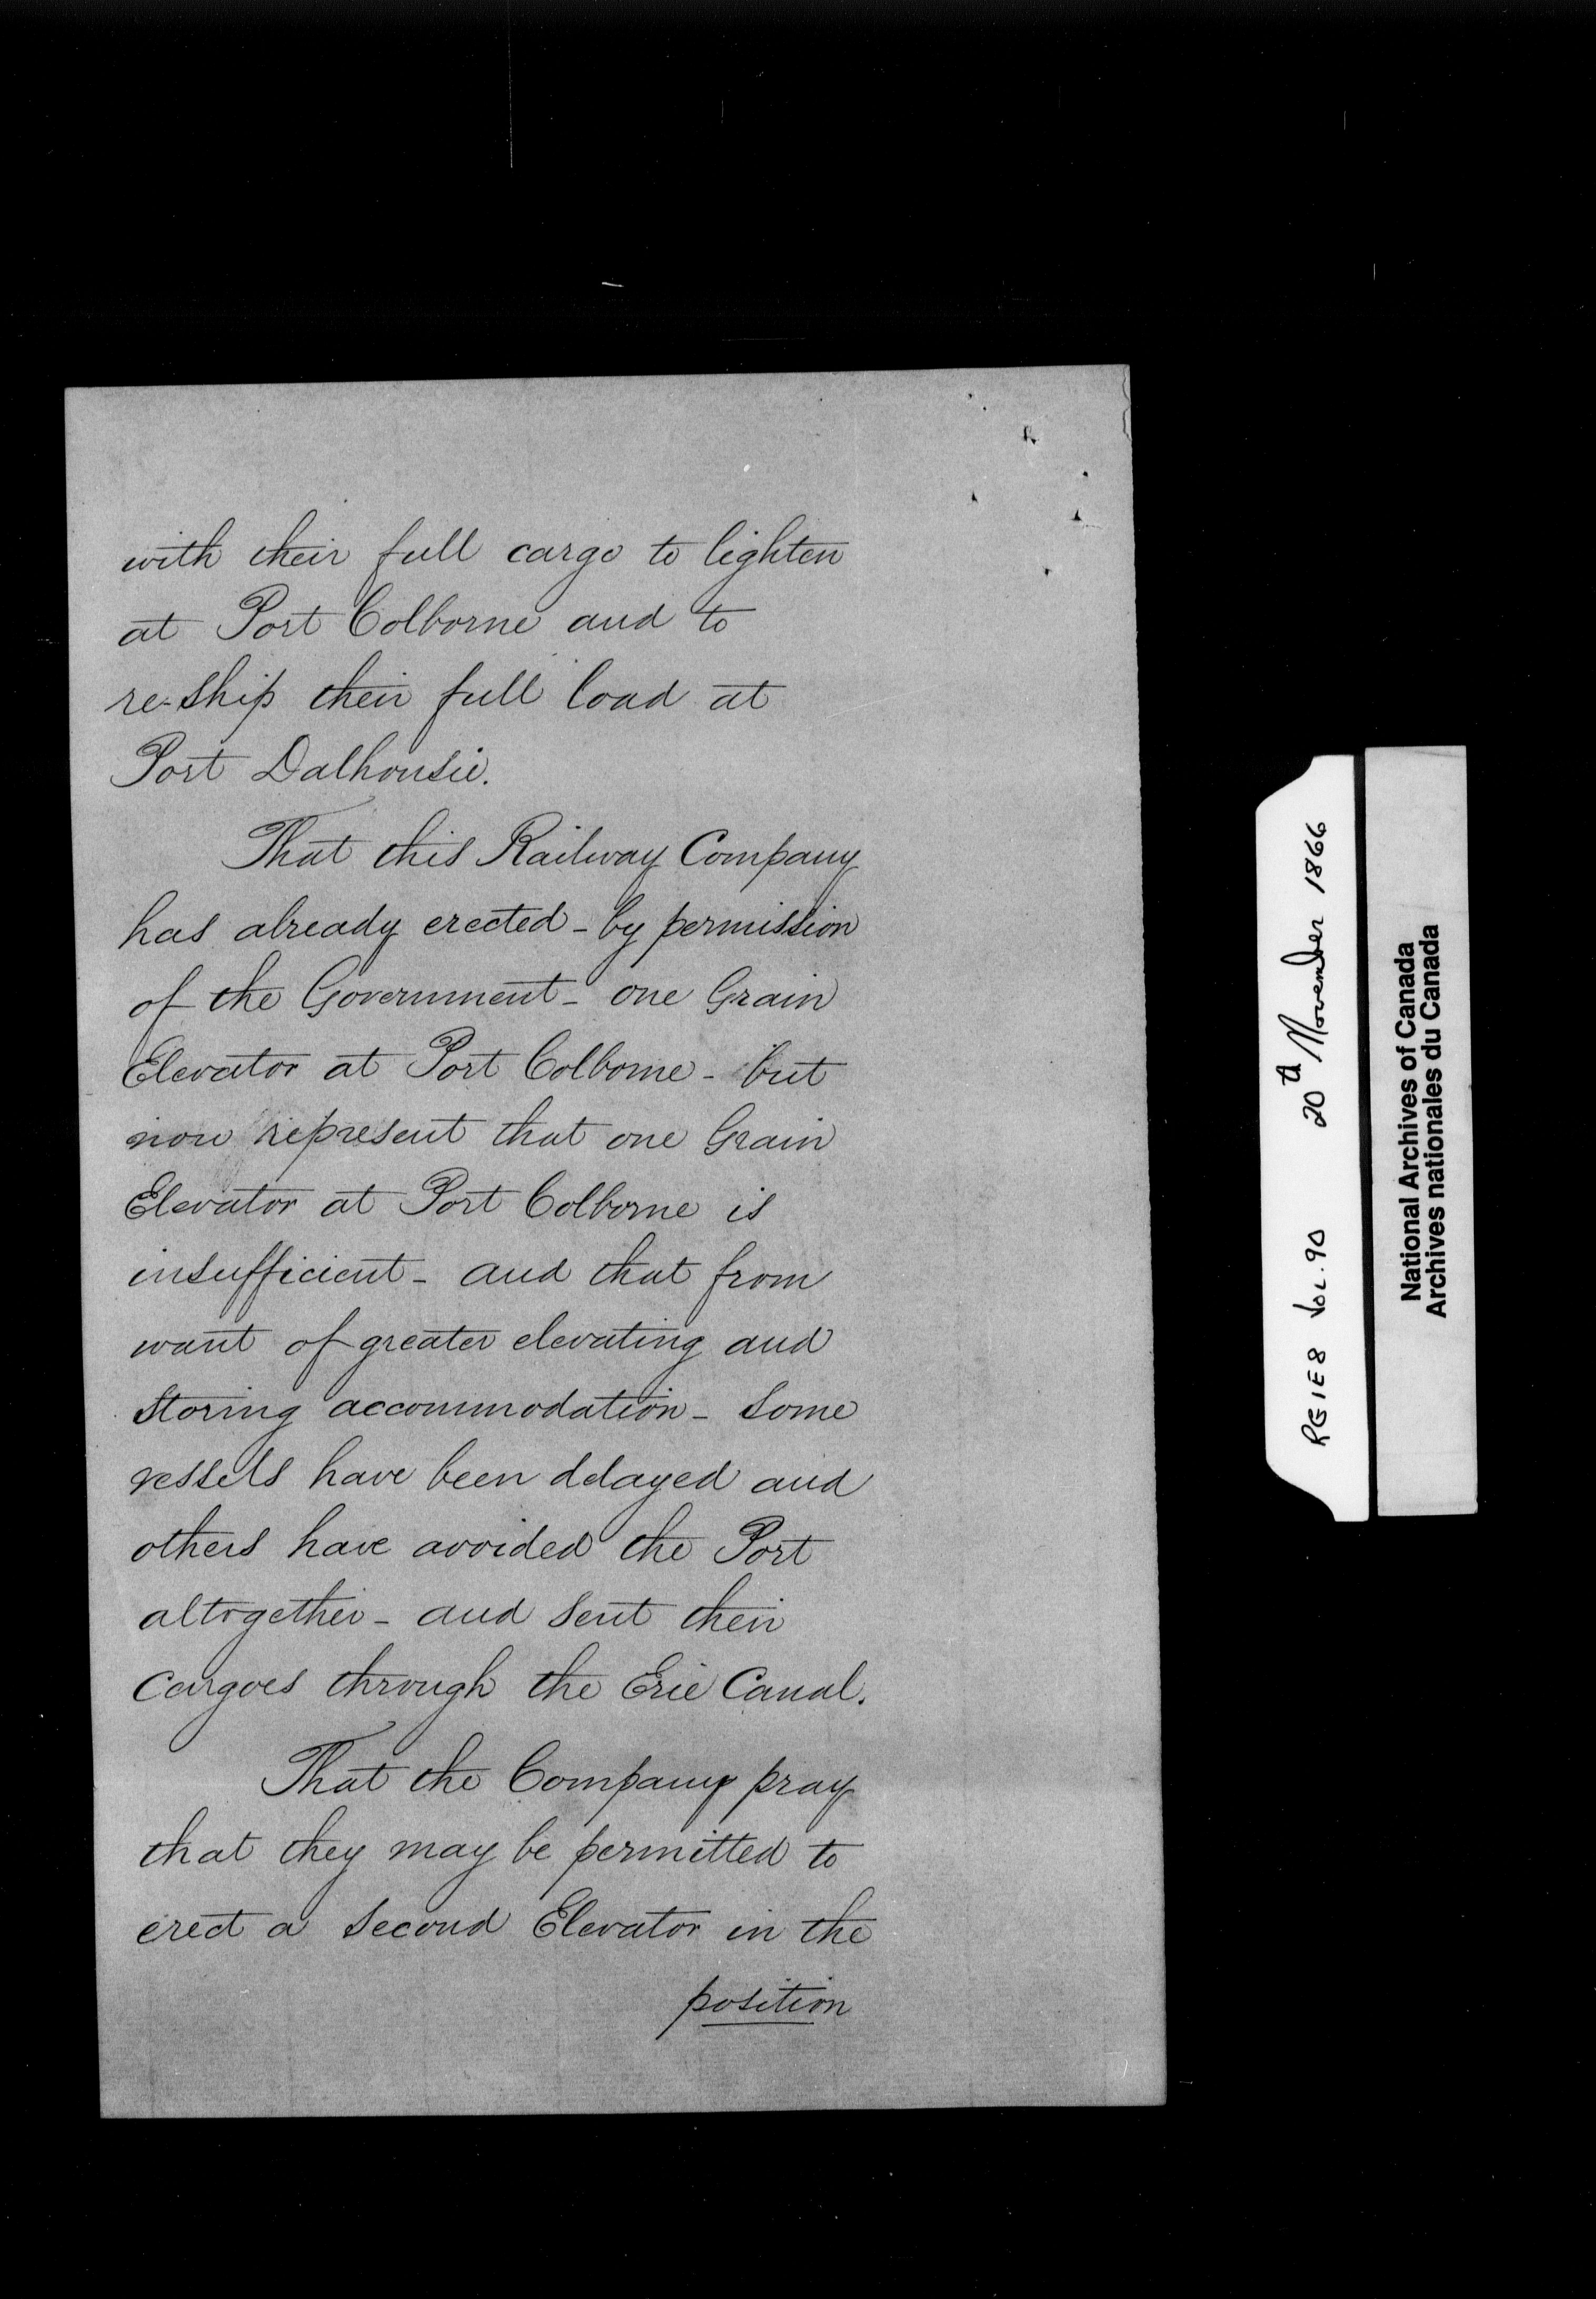 with their full cargo to lighten
at Port Colborne and to
re-ship their full load at
Port Dalhousie.
That this Railway Company
has already erected - by permission
of the Government - one Grain
Elevator at Port Colborne - but
now represent that one Grain
Elevator at Port Colborne is
insufficient - and that from
want of greater elevating and
storing accommodation - some
vessels have been delayed and
others have avoided the Port
altogether - and sent their
cargoes through the Erie Canal.
That the Company pray
that they may be permitted to
erect a second Elevator in the
position
RG1E8 VOL.90 20th November 1866
National Archives of Canada
Archives nationales du Canada